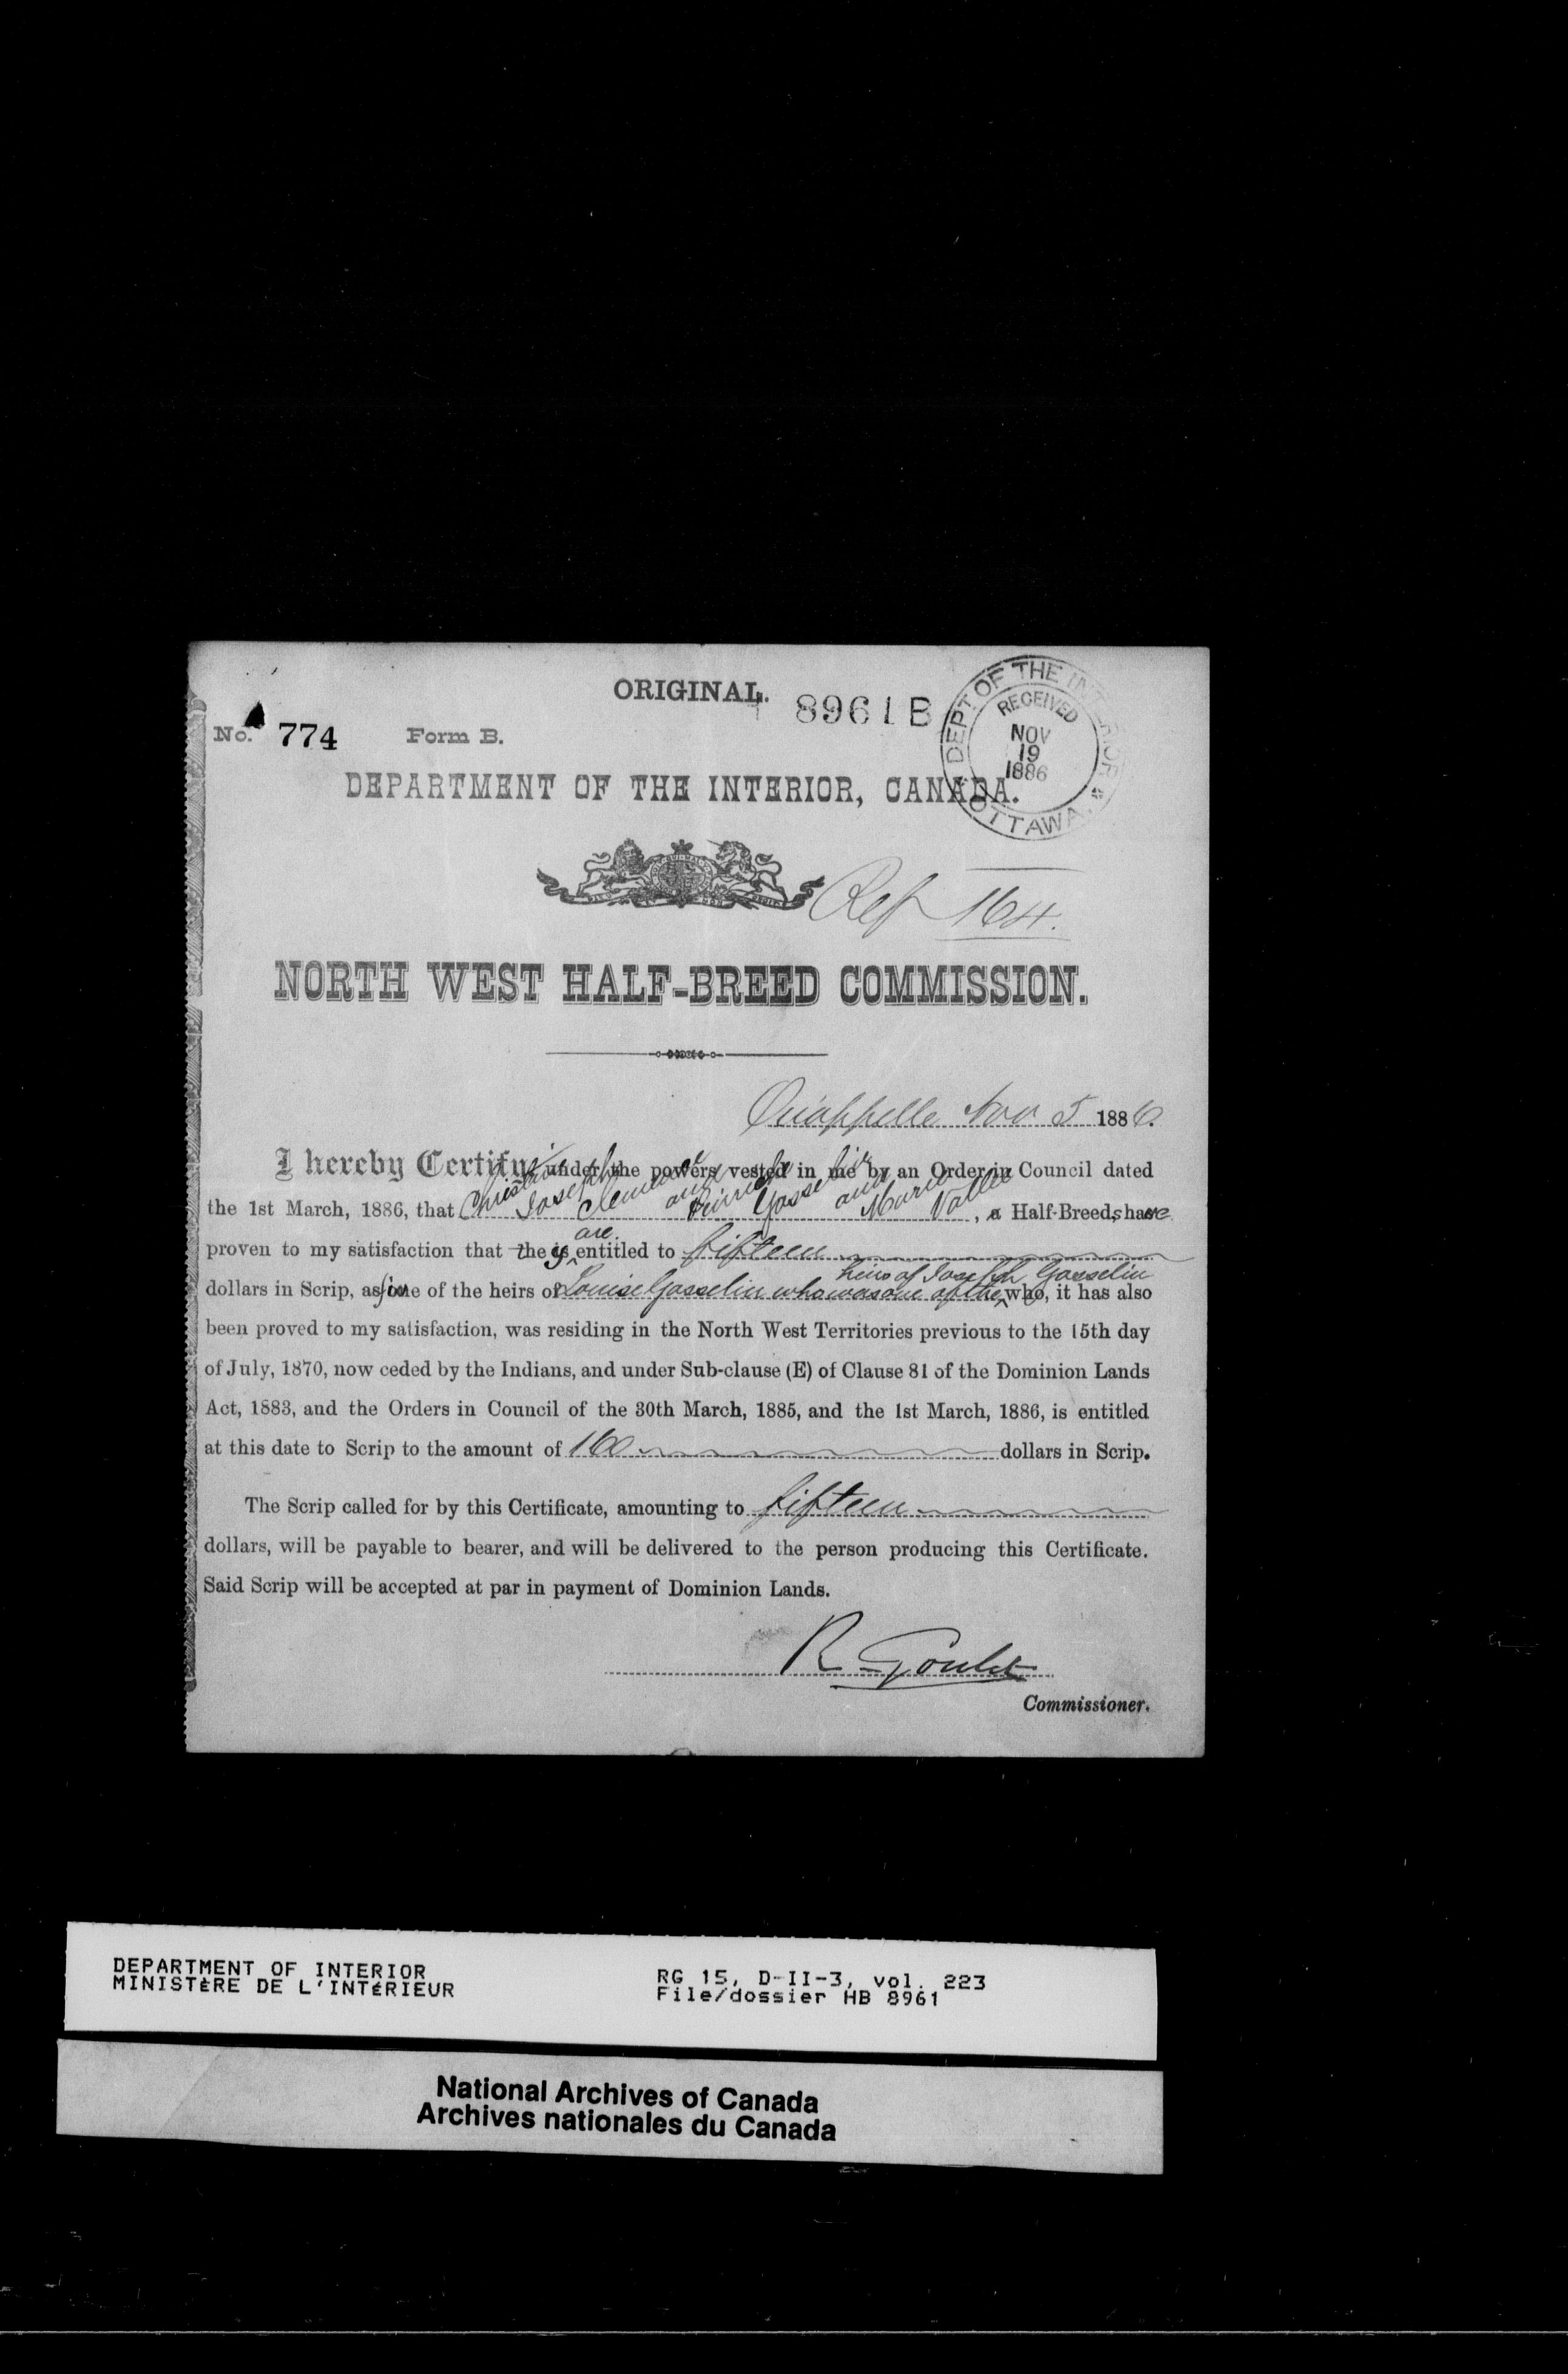 ORIGINAL.
8961 B
DEPT. OF THE INTERIOR
RECEIVED
NOV
19
1886
OTTAWA.
No. 774 Form B.
DEPARTMENT OF THE INTERIOR, CANADA.
Ref 164.
NORTH WEST HALF-BREED COMMISSION.
Qu'appelle Nov 5 1886.
I hereby Certify, under the powers vested in me by an Order in Council dated
the 1st March, 1886, that Joseph Clemence and Gosselin and Marie Vallee, a Half-Breeds have
proven to my satisfaction that they are entitled to fifteen
dollars in Scrip, as five of the heirs of Louise Gosselin who was one of the heirs of Joseph Gosselin who, it has also
been proved to my satisfaction, was residing in the North West Territories previous to the 15th day
of July, 1870, now ceded by the Indians, and under Sub-clause (E) of Clause 81 of the Dominion Lands
Act, 1883, and the Orders in Council of the 30th March, 1885, and the 1st March, 1886, is entitled
at this date to Scrip to the amount of 160 dollars in Scrip.
The Scrip called for by this Certificate, amounting to fifteen
dollars, will be payable to bearer, and will be delivered to the person producing this Certificate.
Said Scrip will be accepted at par in payment of Dominion Lands.
R Goulet
Commissioner.
DEPARTMENT OF INTERIOR
MINISTÈRE DE L'INTÉRIEUR
RG 15, D-II-3, vol. 223
File/dossier HB 8961
National Archives of Canada
Archives nationales du Canada